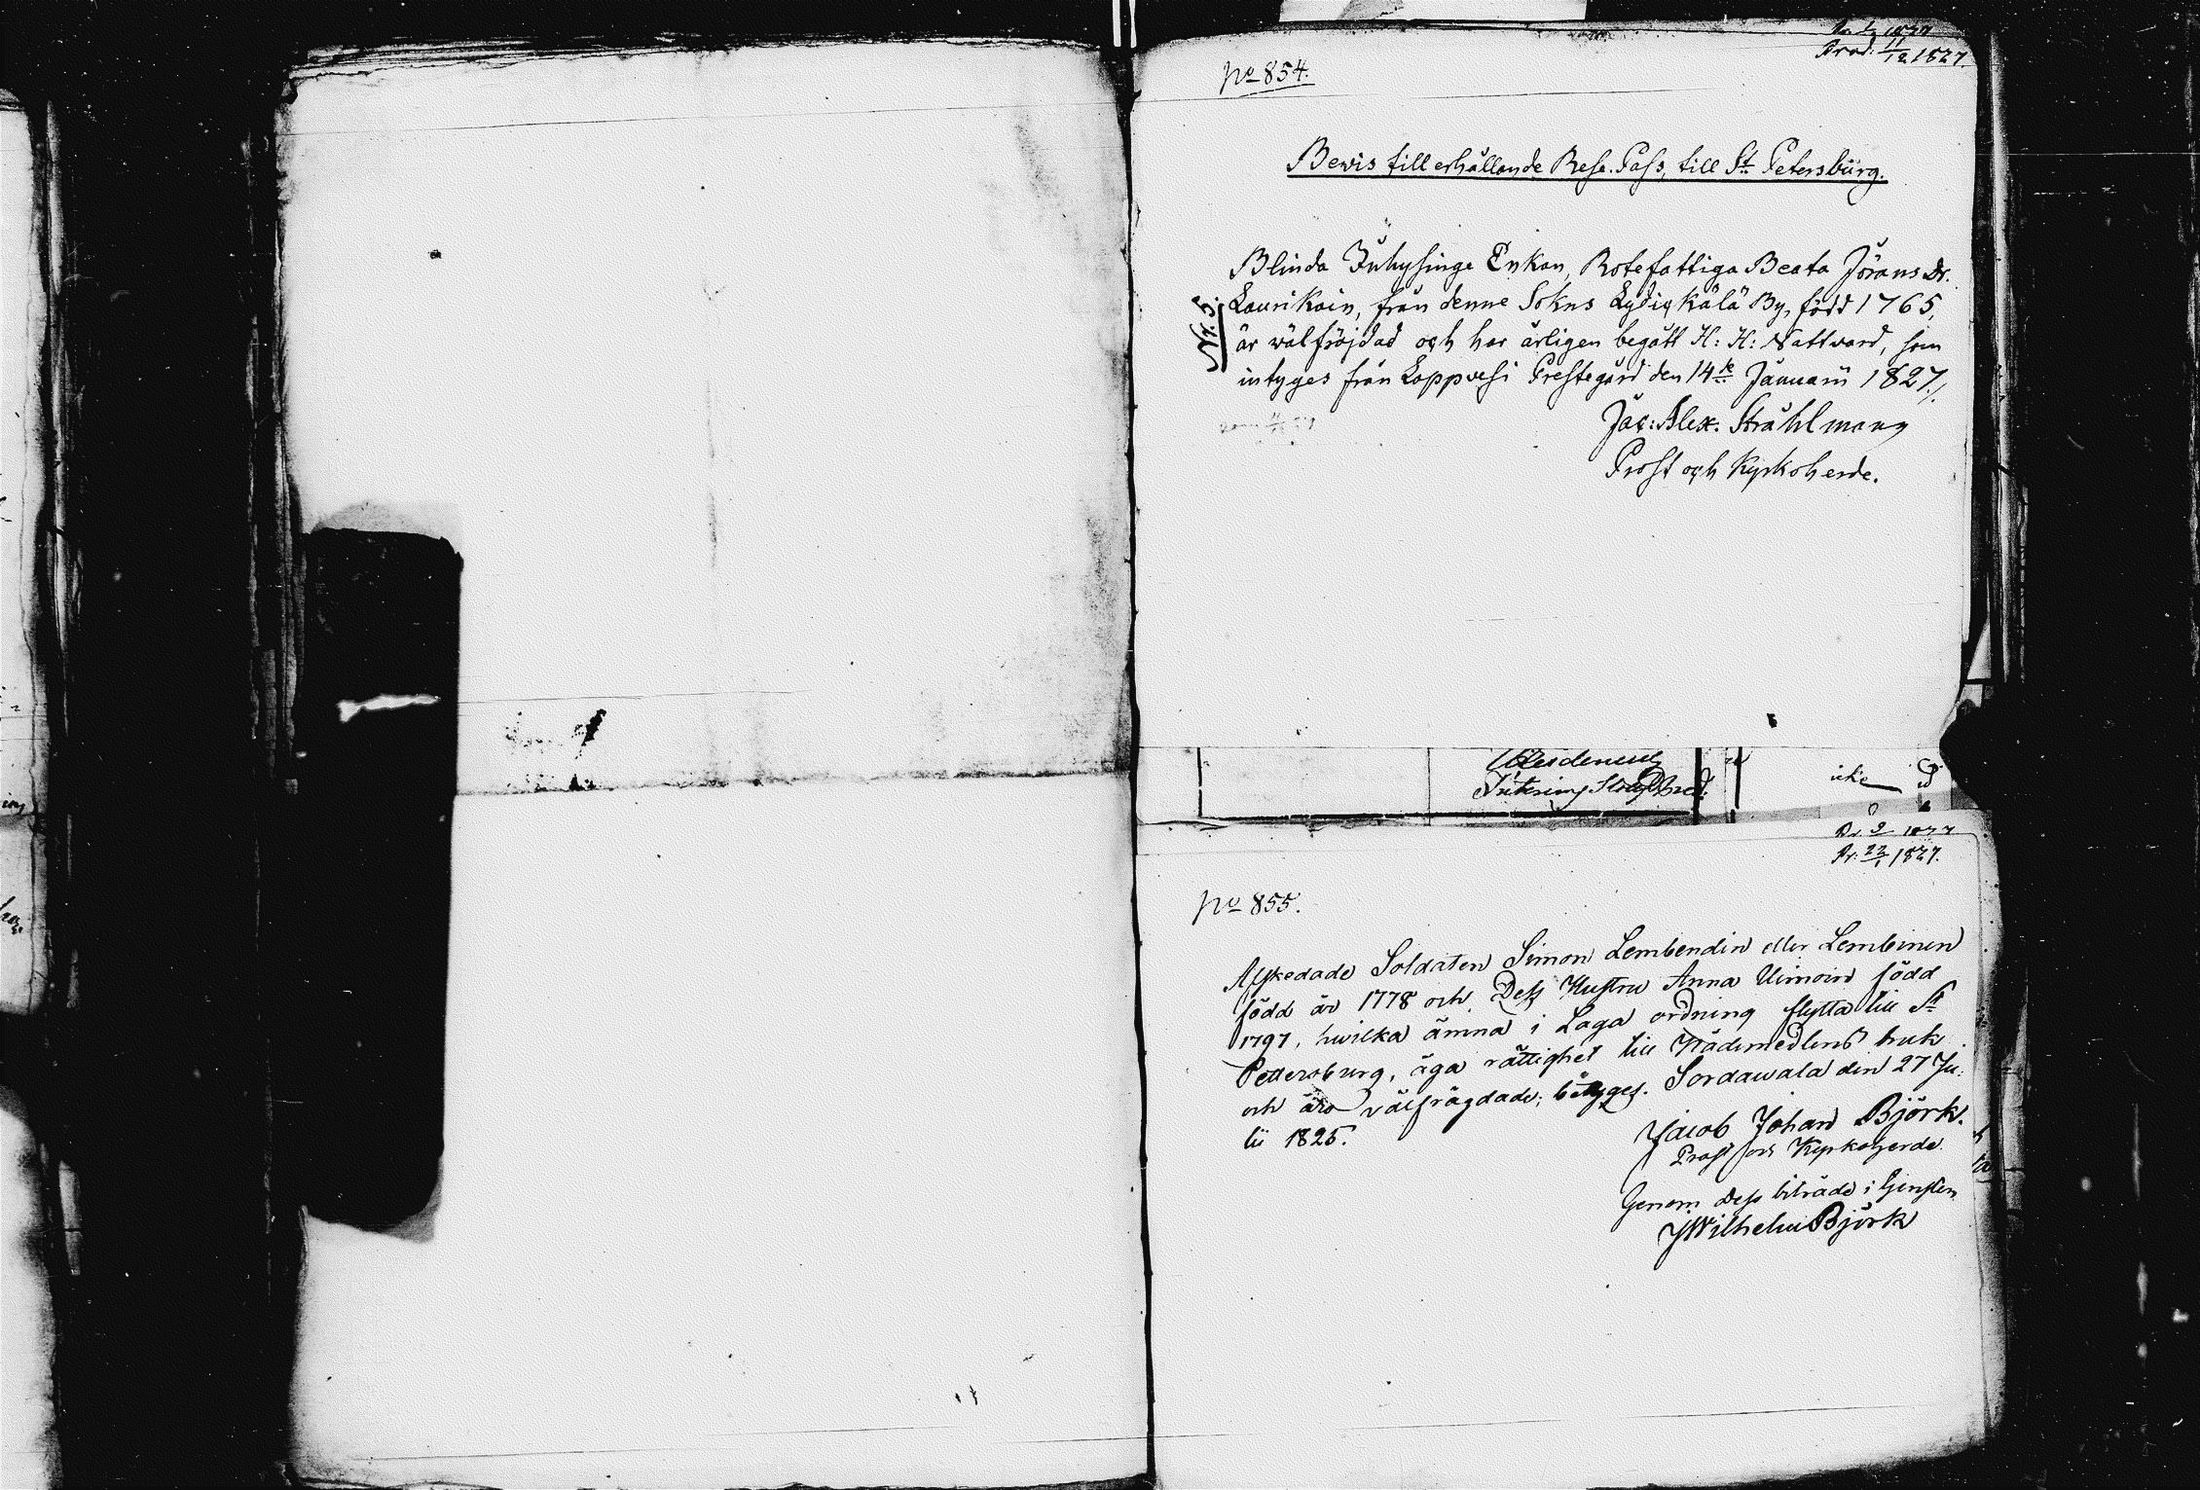 No 854.
Prod: 11/12 1827.
Bewis till erhållande Rese-Pass, till St Petersburg.
Blinda Inhysinge Enkan, Rotefattiga Beata Jörans Dr.
Laurikain, från denne Sokns Kylä By, född 1765,
Nr. 5.
är wälfrejdad och har årligen begått H: H: Nattvard, som
intyges från Lappvesi Prestegård den 14de Januarii 1827./.
Jac: Alex: Stråhlmann
Prost och Kyrkoherde.
icke
Pr: 22/1 1827.
No 855.
Afskedade Soldaten Simon Lembendin eller Lembinen
född år 1778 och Dess Hustru Anna Uimoin född
1797, hwilka ämna i Laga ordning flytta till St
Pettersburg, äga rättighet till Nådemedlens bruk
och äro välfrägdade; betyges. Sordawala den 27 Ju-
lii 1825.
Jacob Johan Björk.
Prost och Kyrkoherde.
Genom Dess biträde i Tjensten
J Wilhelm Björk